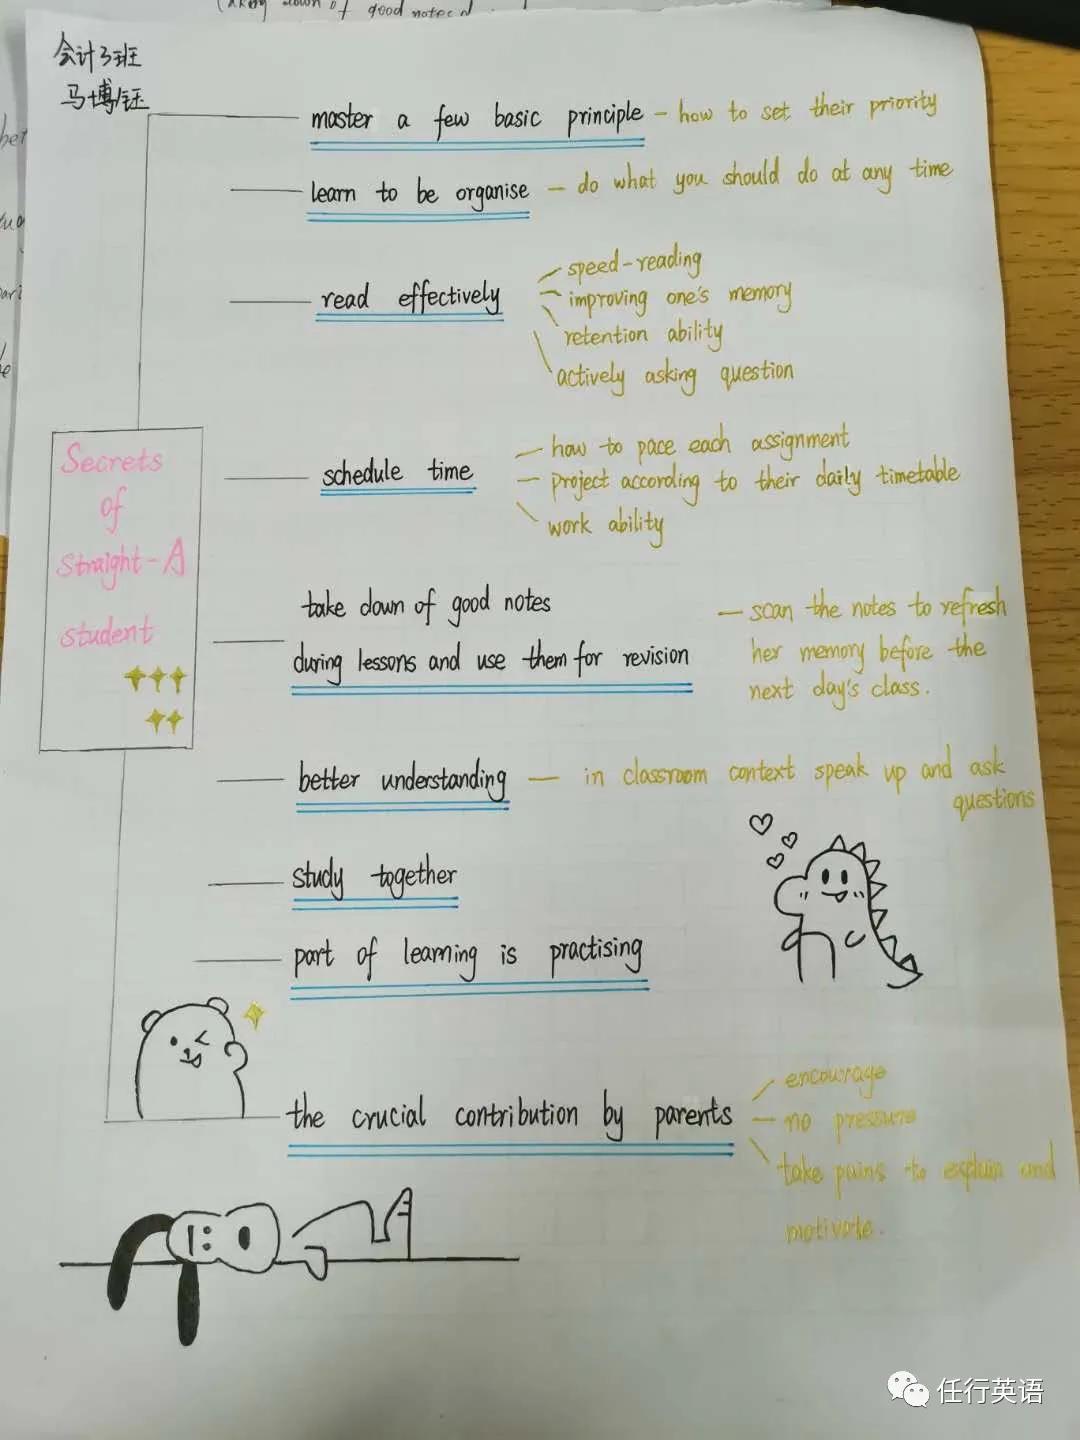 (taking down of good notes d
会计3班
马博钰
master a few basic principle – how to set their priority
learn to be organise – do what you should do at any time
read effectively
speed-reading
improving one's memory
retention ability
actively asking question
Secrets
of
straight-A
student
schedule time
how to pace each assignment
project according to their daily timetable
work ability
take down of good notes
during lessons and use them for revision
scan the notes to refresh
her memory before the
next day's class.
better understanding – in classroom context speak up and ask
questions
study together
part of learning is practising
the crucial contribution by parents
encourage
no pressure
take pains to explain and
motivate.
任行英语